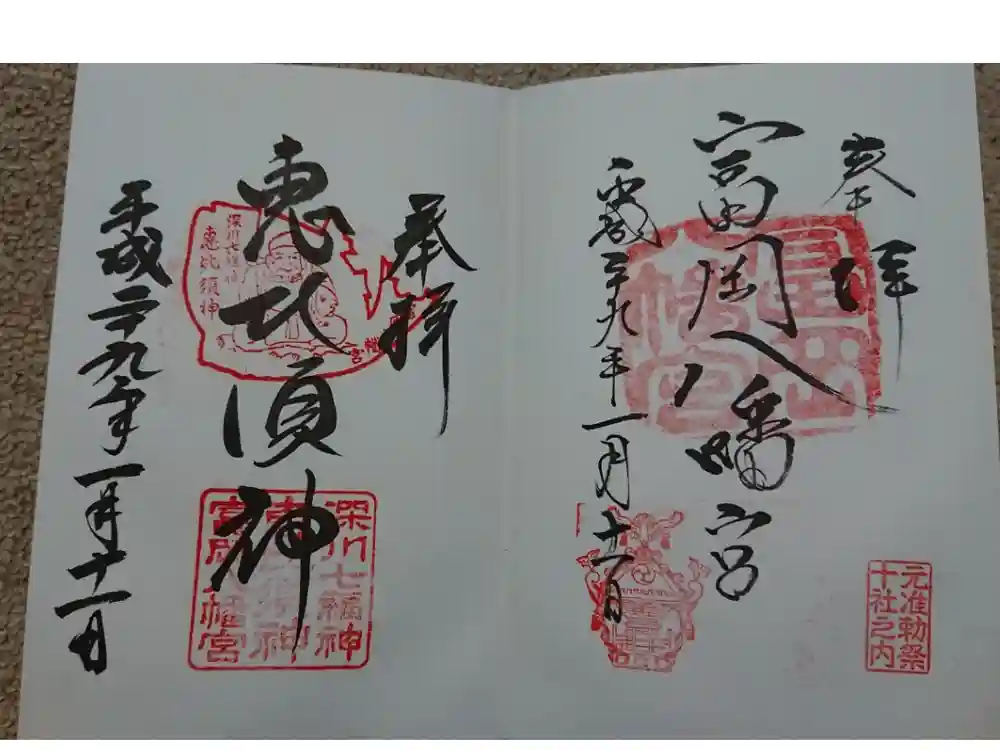 奉拝
富岡八幡宮
平成二十九年一月十一日
元准勅祭
十社之内
奉拝
恵比須神
深川七福神
恵比須神
深川七福神
富岡八幡宮
平成二十九年一月十一日